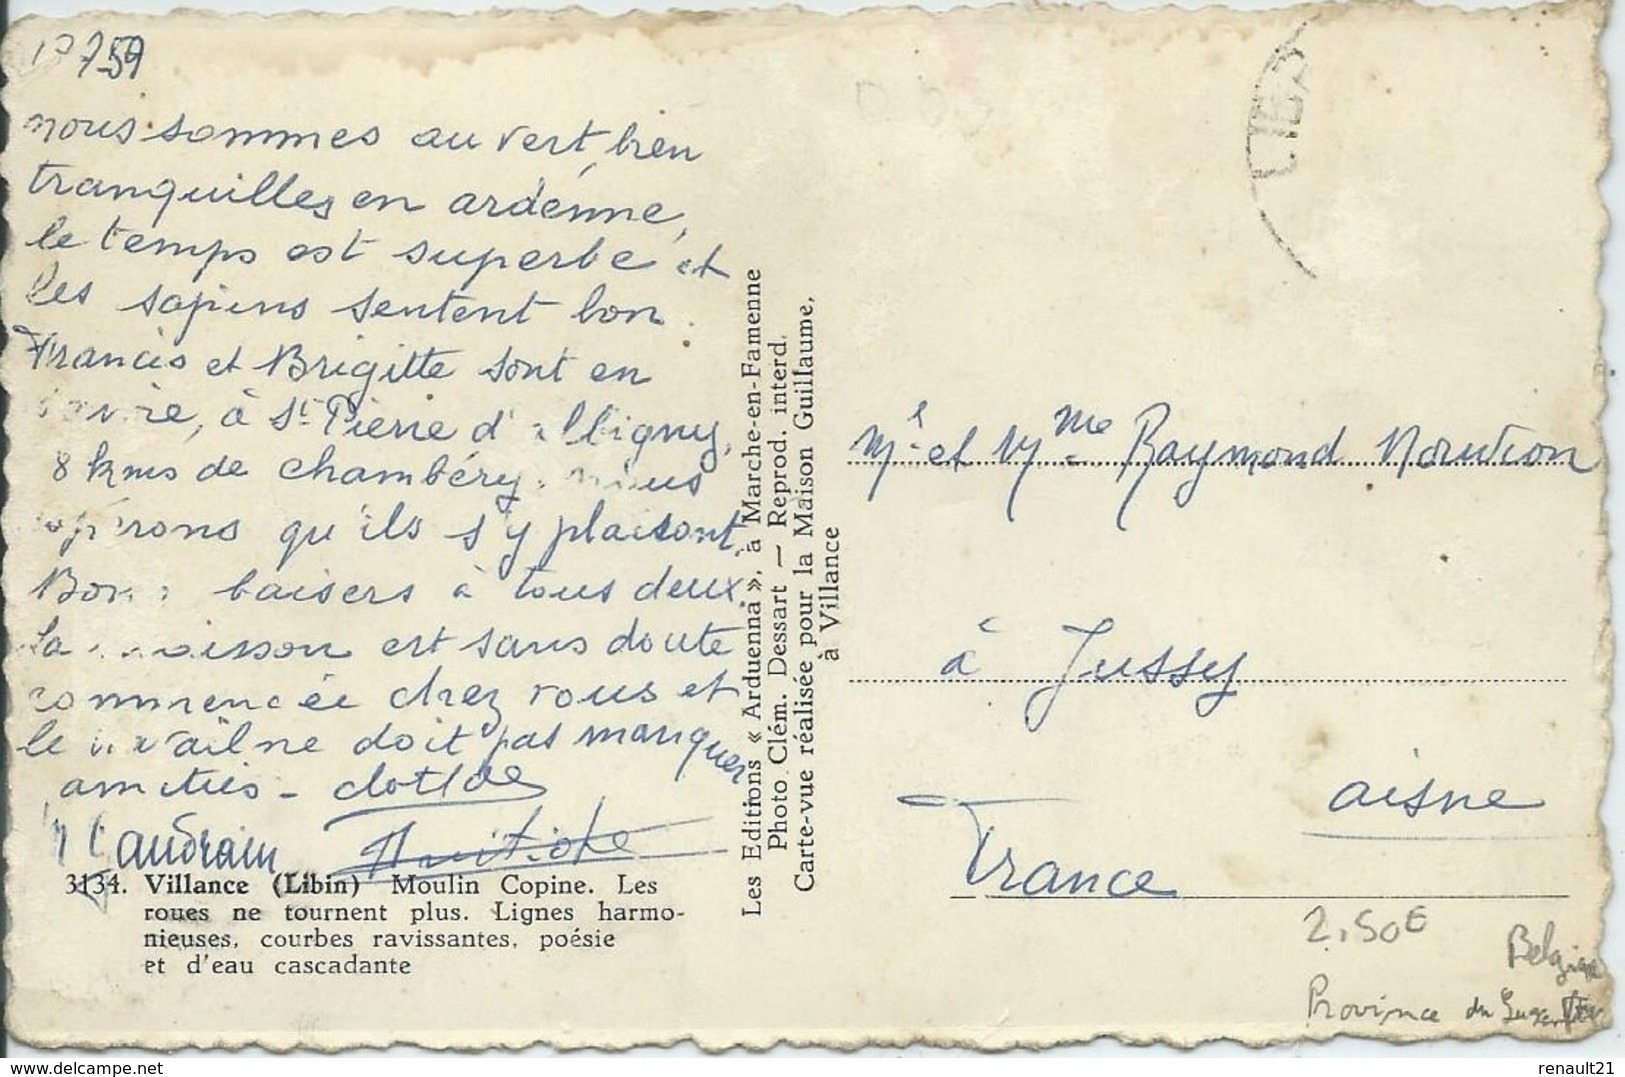 759
nous sommes au vert, bien
tranquilles en ardenne,
le temps est superbe et
les sapins sentent bon.
Francis et Brigitte sont en
à St Pierre d'albigny,
8 kms de chambéry. nous
espérons qu'ils s'y plaisont,
Bons baisers à tous deux.
La moisson est sans doute
commencée chez vous et
le travail ne doit pas manquer
amitiés - Clotilde
Mr et Mme Raymond
à Jussy
aisne
France
LIBR
3134. Villance (Libin) Moulin Copine. Les
roues ne tournent plus. Lignes harmo-
nieuses, courbes ravissantes, poésie
et d'eau cascadante
Les Editions « Arduenna », à Marche-en-Famenne
Photo Clém. Dessart — Reprod. interd.
Carte-vue réalisée pour la Maison Guillaume,
à Villance
2,50€
Belgique
Province du
www.delcampe.net
renault21